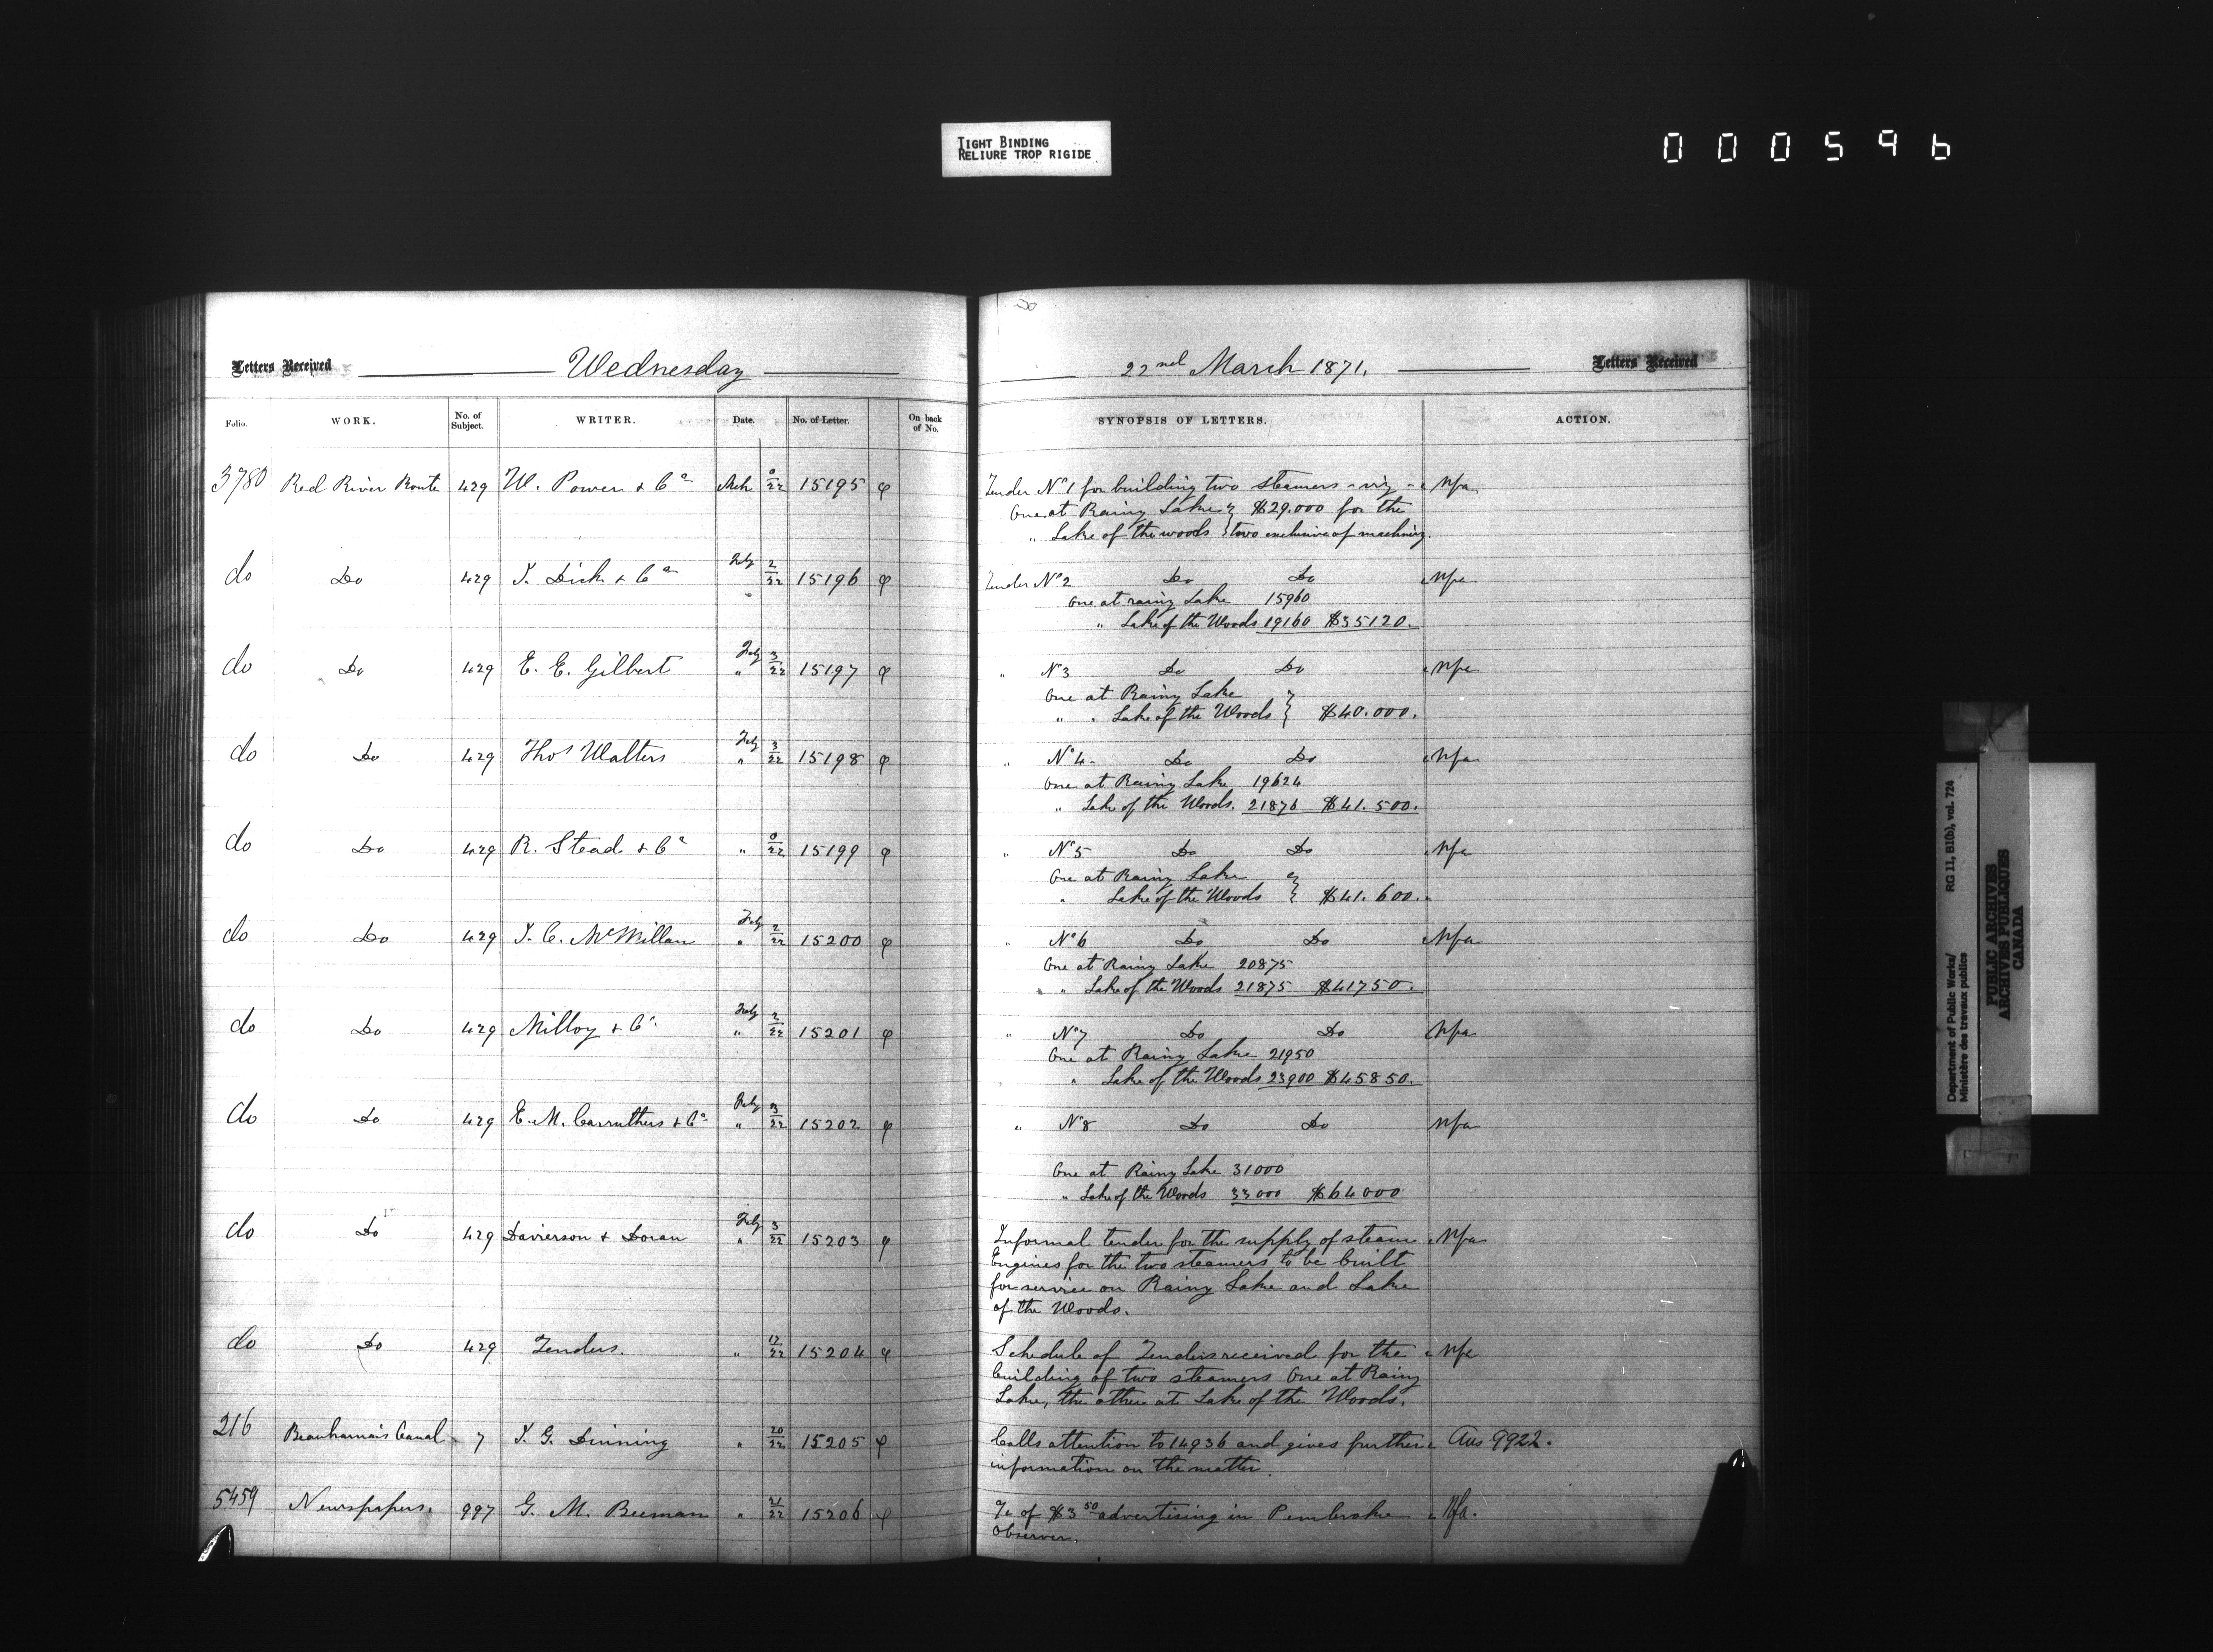 TIGHT BINDING
RELIURE TROP RIGIDE
000596
Letters Received Wednesday
Folio. WORK. No. of Subject. WRITER. Date. No. of Letter. On back of No.
22nd March 1871. Letters Received
SYNOPSIS OF LETTERS. ACTION.
3780 Red River Route 429 W. Power & Co Mch 0/22 15195 φ Tender No 1 for building two steamers - viz - Nfa
One at Rainy Lake } $29.000 for the
" Lake of the woods } two exclusive of machinery.
do Do 429 J. Dick & Co Feby 2/22 15196 φ Tender No 2 Do Do Nfa
One at rainy Lake 15960
" Lake of the Woods 19160 $35120.
do Do 429 E. E. Gilbert Feby " 3/22 15197 φ " No 3 Do Do Nfa
One at Rainy Lake }
" " Lake of the Woods } $40.000.
do Do 429 Thos Walters Feby " 3/22 15198 φ " No 4 - Do Do Nfa
One at Rainy Lake 19624
" Lake of the Woods. 21876 $41.500.
do Do 429 R. Stead & Co " 0/22 15199 φ " No 5 Do Do Nfa
One at Rainy Lake }
" Lake of the Woods } $41.600.
do Do 429 J. C. McMillan Feby " 2/22 15200 φ " No 6 Do Do Nfa
One at Rainy Lake 20875
" " Lake of the Woods 21875 $41750.
do Do 429 Milloy & Co Feby " 2/22 15201 φ " No 7 Do Do Nfa
One at Rainy Lake 21950
" Lake of the Woods 23900 $45850.
do Do 429 E. M. Carruthers & Co Feby " 3/22 15202 φ " No 8 Do Do Nfa
One at Rainy Lake 31000
" Lake of the Woods 33000 $64000
do Do 429 Davierson & Doran Feby " 3/22 15203 φ Informal tender for the supply of steam Nfa
Engines for the two steamers to be built
for service on Rainy Lake and Lake
of the Woods.
do Do 429 Tenders. " 17/22 15204 φ Schedule of Tenders received for the Nfa
building of two steamers One at Rainy
Lake, the other at Lake of the Woods.
216 Beauharnois Canal 7 J. G. Dinning " 20/22 15205 φ Calls attention to 14936 and gives further Ans 9922.
information on the matter.
5459 Newspapers. 997 G. M. Beeman " 21/22 15206 φ a/c of $3 50 advertising in Pembroke Nfa.
Observer.
Department of Public Works/ RG 11, B1(b), vol. 724
Ministère des travaux publics
PUBLIC ARCHIVES
ARCHIVES PUBLIQUES
CANADA